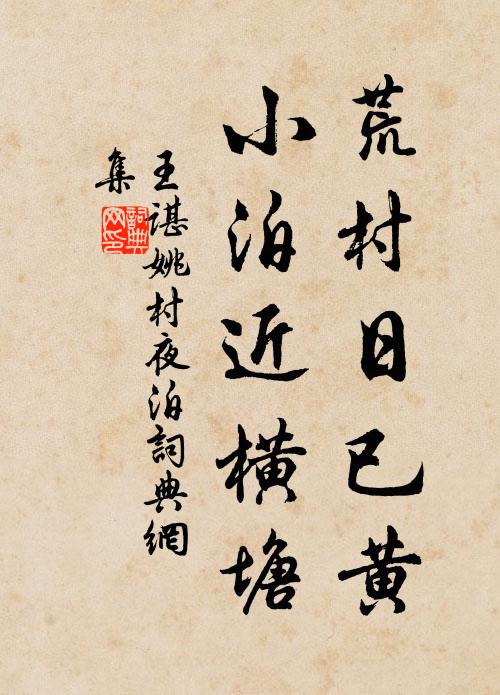 荒村日已黄
小泊近橫塘
王谌姚村夜泊詞典網
集
詞典
网印